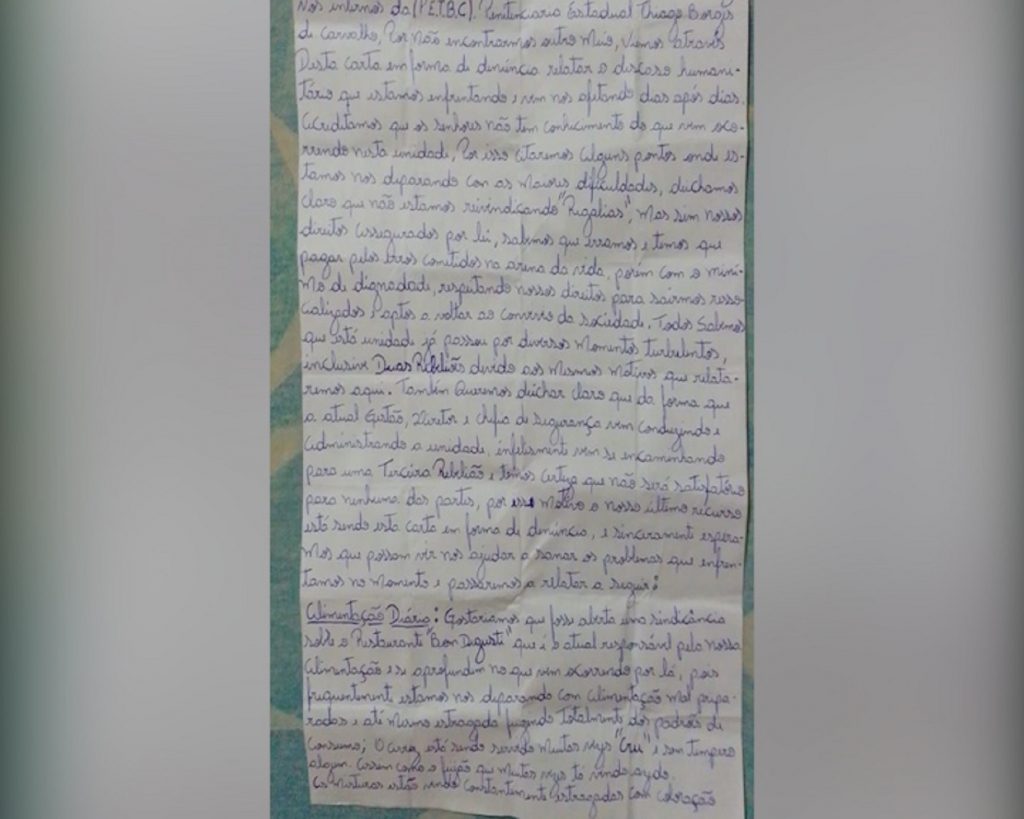 Nós internos da (P.E.T.B.C). Penitenciaria Estadual Thiago Borges
de Carvalho, Por não encontrarmos outro Meio, Viemos através
Desta carta em forma de denúncia relatar o descaso humani-
tário que estamos enfrentando e vem nos afetando dias após dias.
Acreditamos que os senhores não tem conhecimento do que vem oco-
rrendo nesta unidade, Por isso citaremos alguns pontos onde es-
tamos nos deparando com as Maiores dificuldades, deichamos
claro que não estamos reivindicando "Regalias", Mas sim nossos
direitos assegurados por lei, sabemos que erramos e temos que
pagar pelos erros cometidos na arena da vida, porém com o míni-
mo de dignadade, respeitando nossos direitos para sairmos resso-
cializados e aptos a voltar ao convivio da sociedade. Todos Sabemos
que está unidade já passou por diversos Momentos turbulentos,
inclusive Duas Rebeliões devido aos Mesmos Motivos que relata-
remos aqui. Também Queremos deichar claro que da forma que
a atual Gestão, Diretor e chefia de Segurança vem conduzindo e
Administrando a unidade, infelismente vem se encaminhando
para uma Terceira Rebelião e temos certeza que não será satisfatório
para nenhuma das partes, por esse Motivo o nosso último recurso
está sendo está carta em forma de denúncia, e sinceramente espera-
Mos que possam vir nos ajudar a sanar os problemas que enfren-
tamos no Momento e passaremos a relatar a seguir:
Alimentação Diária: Gostariamos que fosse aberta uma sindicância
sobre o Restaurante "Bon Degusti" que é o atual responsável pela nossa
Alimentação e se aprofundem no que vem ocorrendo por lá, pois
frequentimente estamos nos deparando com Alimentação Mal prepa-
radas e até Mesmo estragada fugindo Totalmente dos padrões de
Consumo; O arroz está sendo servido Muitas vezes "Cru" e sem tempero
algum. Assim como o feijão que Muitas vezes tá vindo azedo.
As Misturas estão vindo Constantemente estragadas com coloração